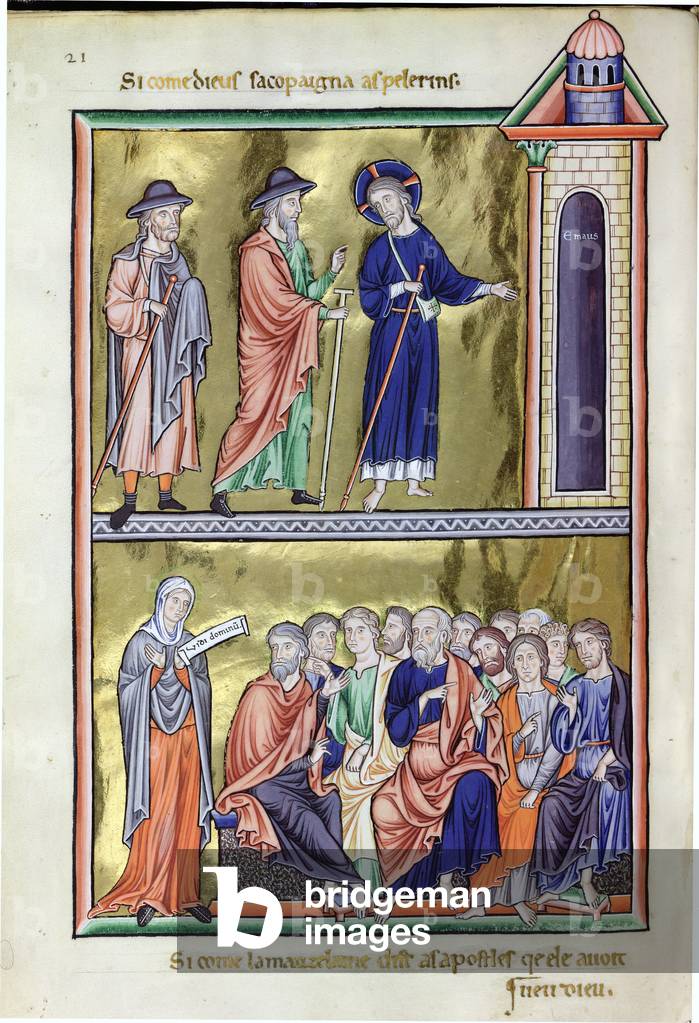 21
Si come dieus sacopaigna as pelerins.
Emaus
Vidi dominū
bridgeman
images
Si come la mauzeleine dist as apostles qe ele avoit
veu dieu.